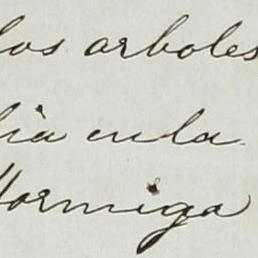 los arboles
hia en la
Hormiga